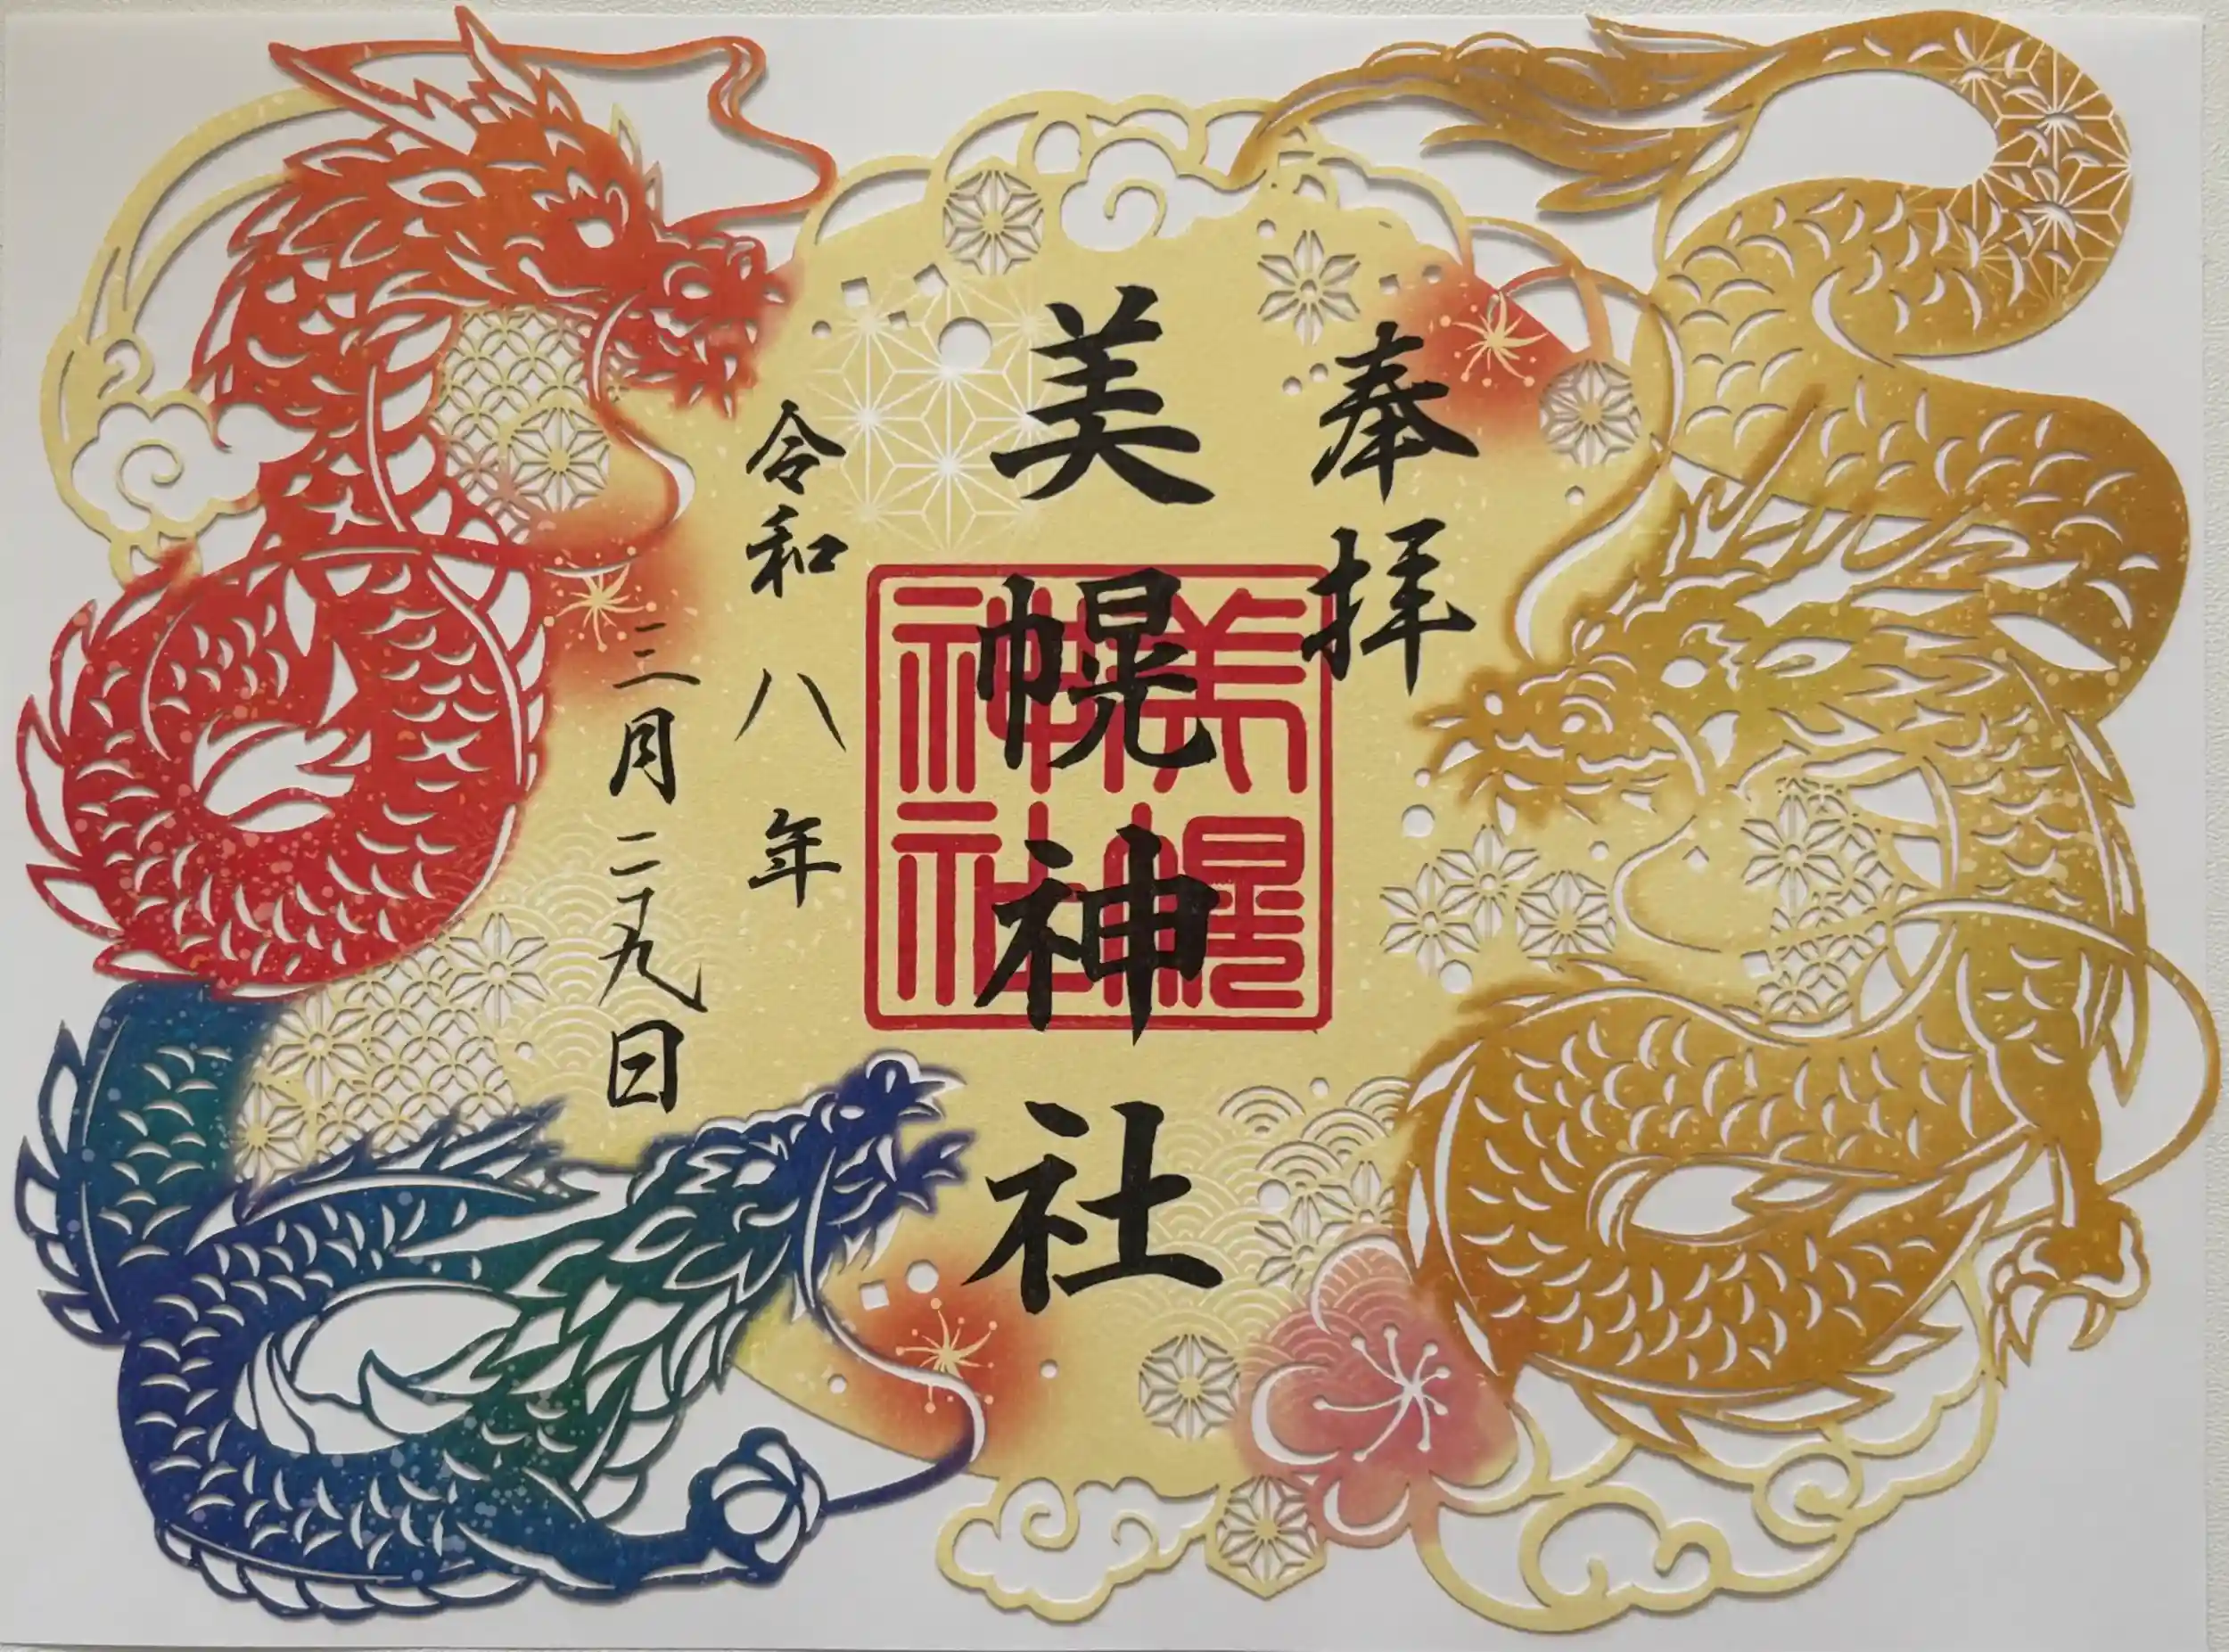 奉拝
美幌神社
美幌
神社
令和八年
三月二十九日